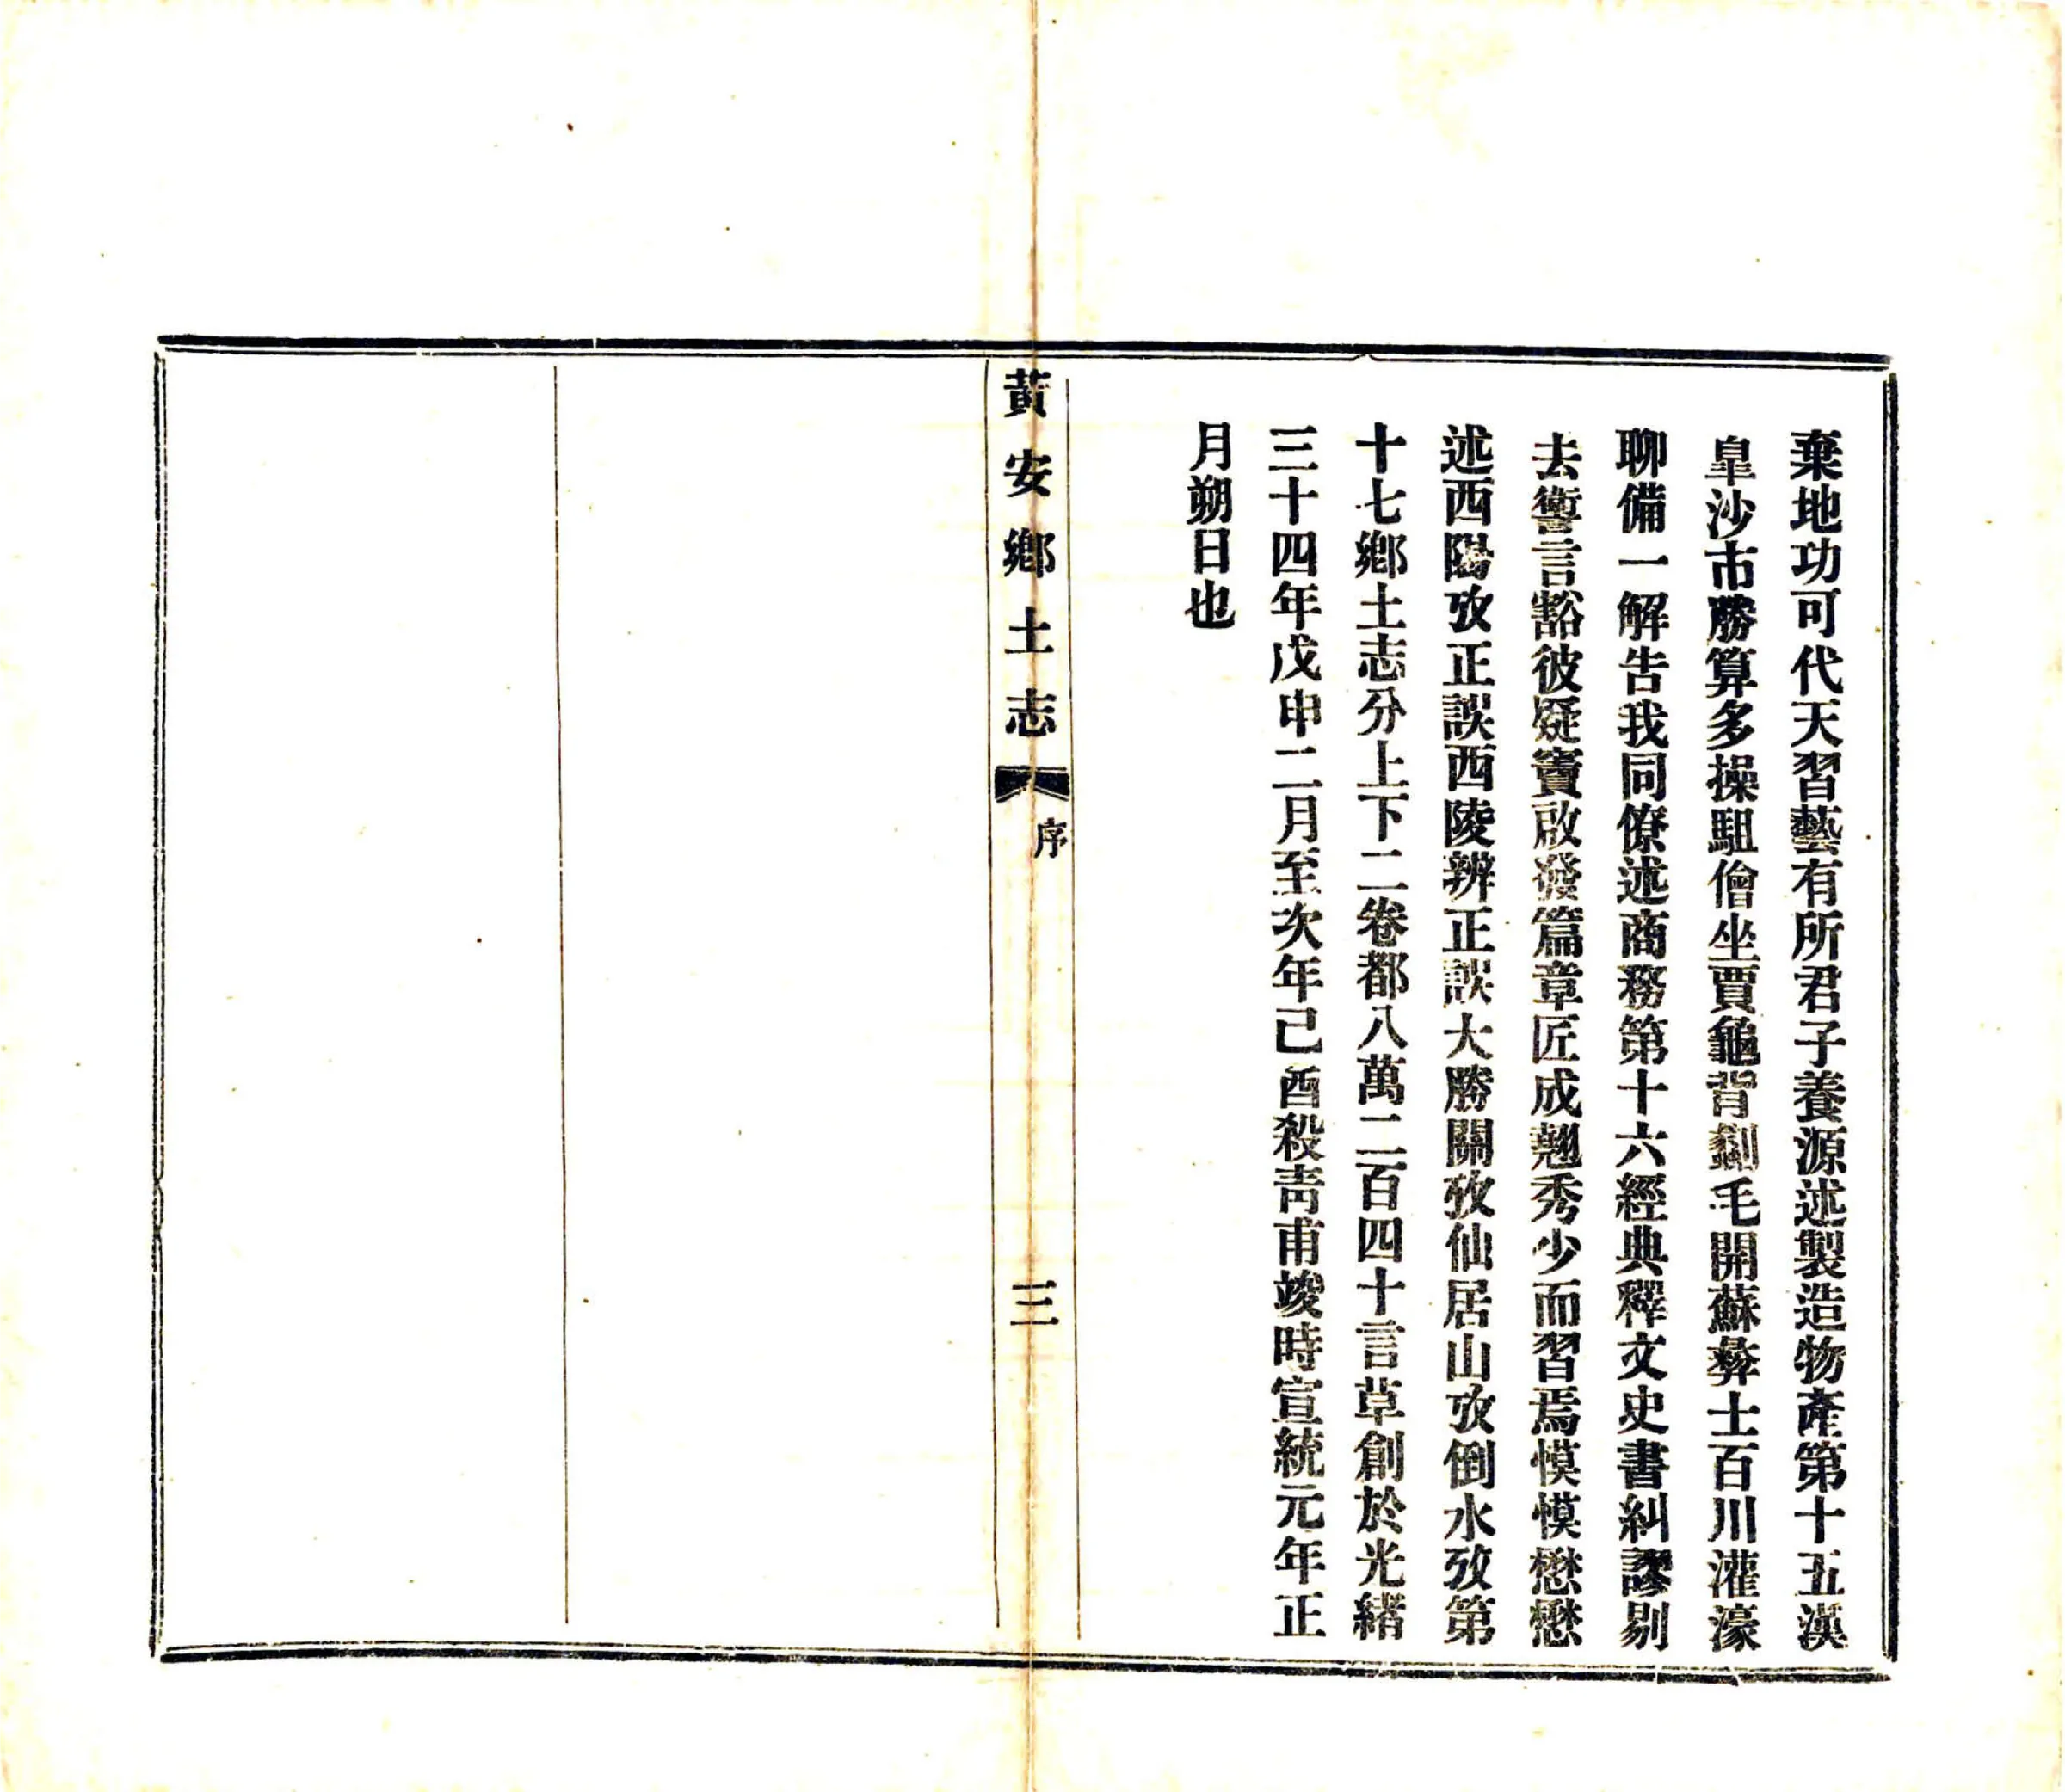 棄地功可代天習藝有所君子養源述製造物產第十五漢
皐沙市勝算多操駔儈坐賈龜背劙毛開蘇彝士百川灌濠
聊備一解告我同僚述商務第十六經典釋文史書糾謬剔
去讏言豁彼疑竇啟發篇章匠成翹秀少而習焉慔慔懋懋
述西陽攷正誤西陵辨正誤大勝關攷仙居山攷倒水攷第
十七鄉土志分上下二卷都八萬二百四十言草創於光緖
三十四年戊申二月至次年己酉殺靑甫竣時宣統元年正
月朔日也
黃安鄉土志
序
三